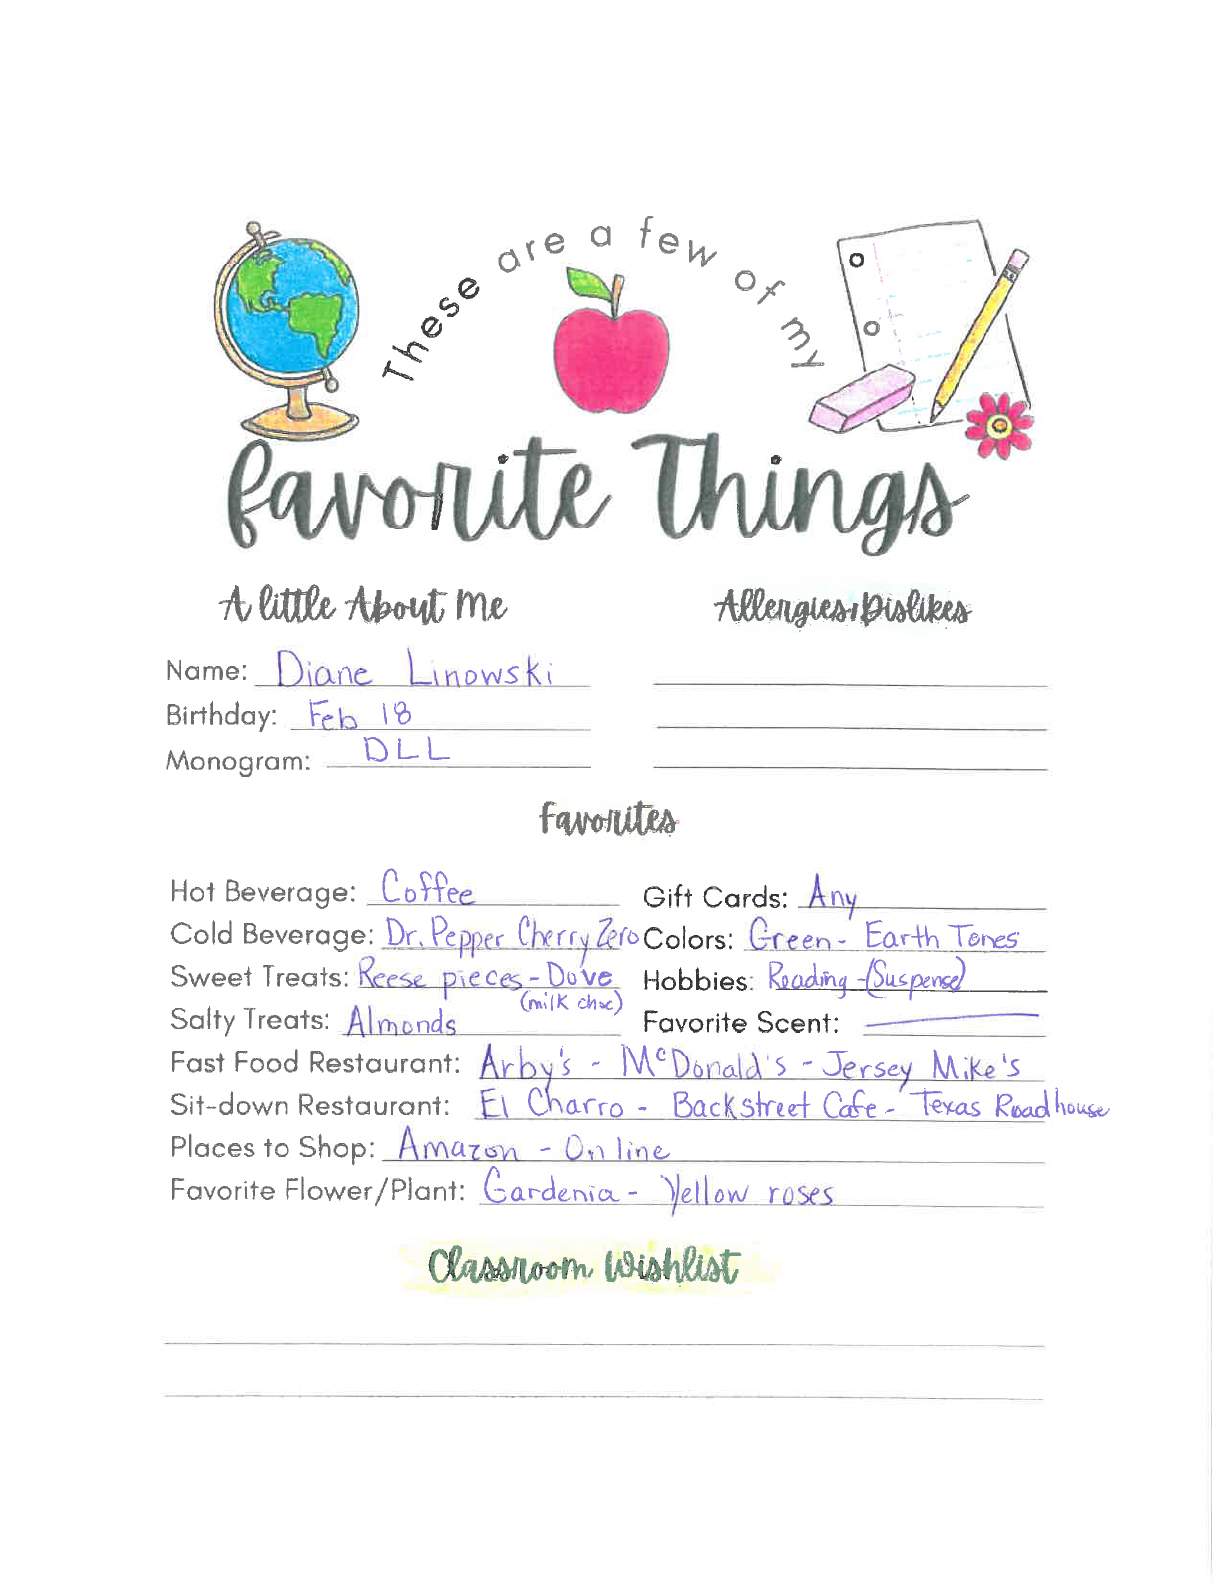 These are a few of my
favorite Things
A little About Me
Allergies/Dislikes
Name: Diane Linowski
Birthday: Feb 18
Monogram: DLL
Favorites
Hot Beverage: Coffee
Gift Cards: Any
Cold Beverage: Dr. Pepper Cherry Zero
Colors: Green - Earth Tones
Sweet Treats: Reese pieces - Dove
(milk choc)
Hobbies: Reading - (Suspense)
Salty Treats: Almonds
Favorite Scent:
Fast Food Restaurant: Arby's - McDonald's - Jersey Mike's
Sit-down Restaurant: El Charro - Backstreet Cafe - Texas Roadhouse
Places to Shop: Amazon - Online
Favorite Flower/Plant: Gardenia - Yellow roses
Classroom Wishlist